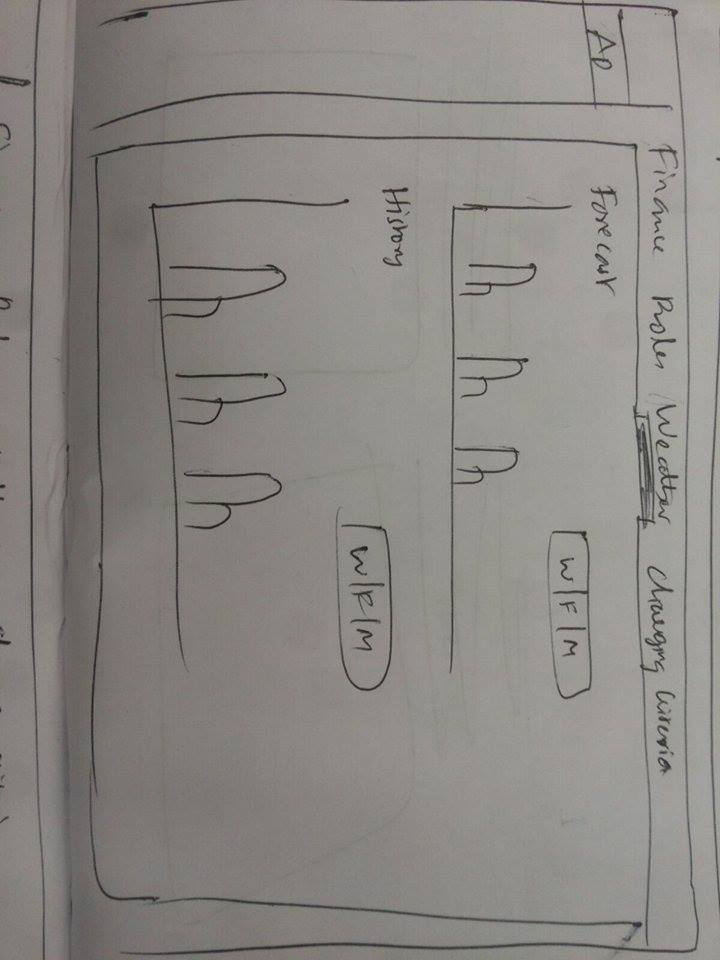 Finance Rules Weather Changing Criteria
AD
Forecast
W/F/M
History
W/F/M